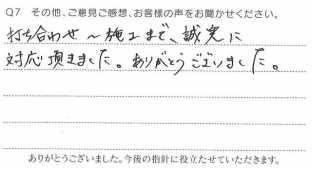 Q7 その他、ご意見ご感想、お客様の声をお聞かせください。
打ち合わせ～施工まで、誠実に
対応頂きました。ありがとうございました。
ありがとうございました。今後の指針に役立たせていただきます。